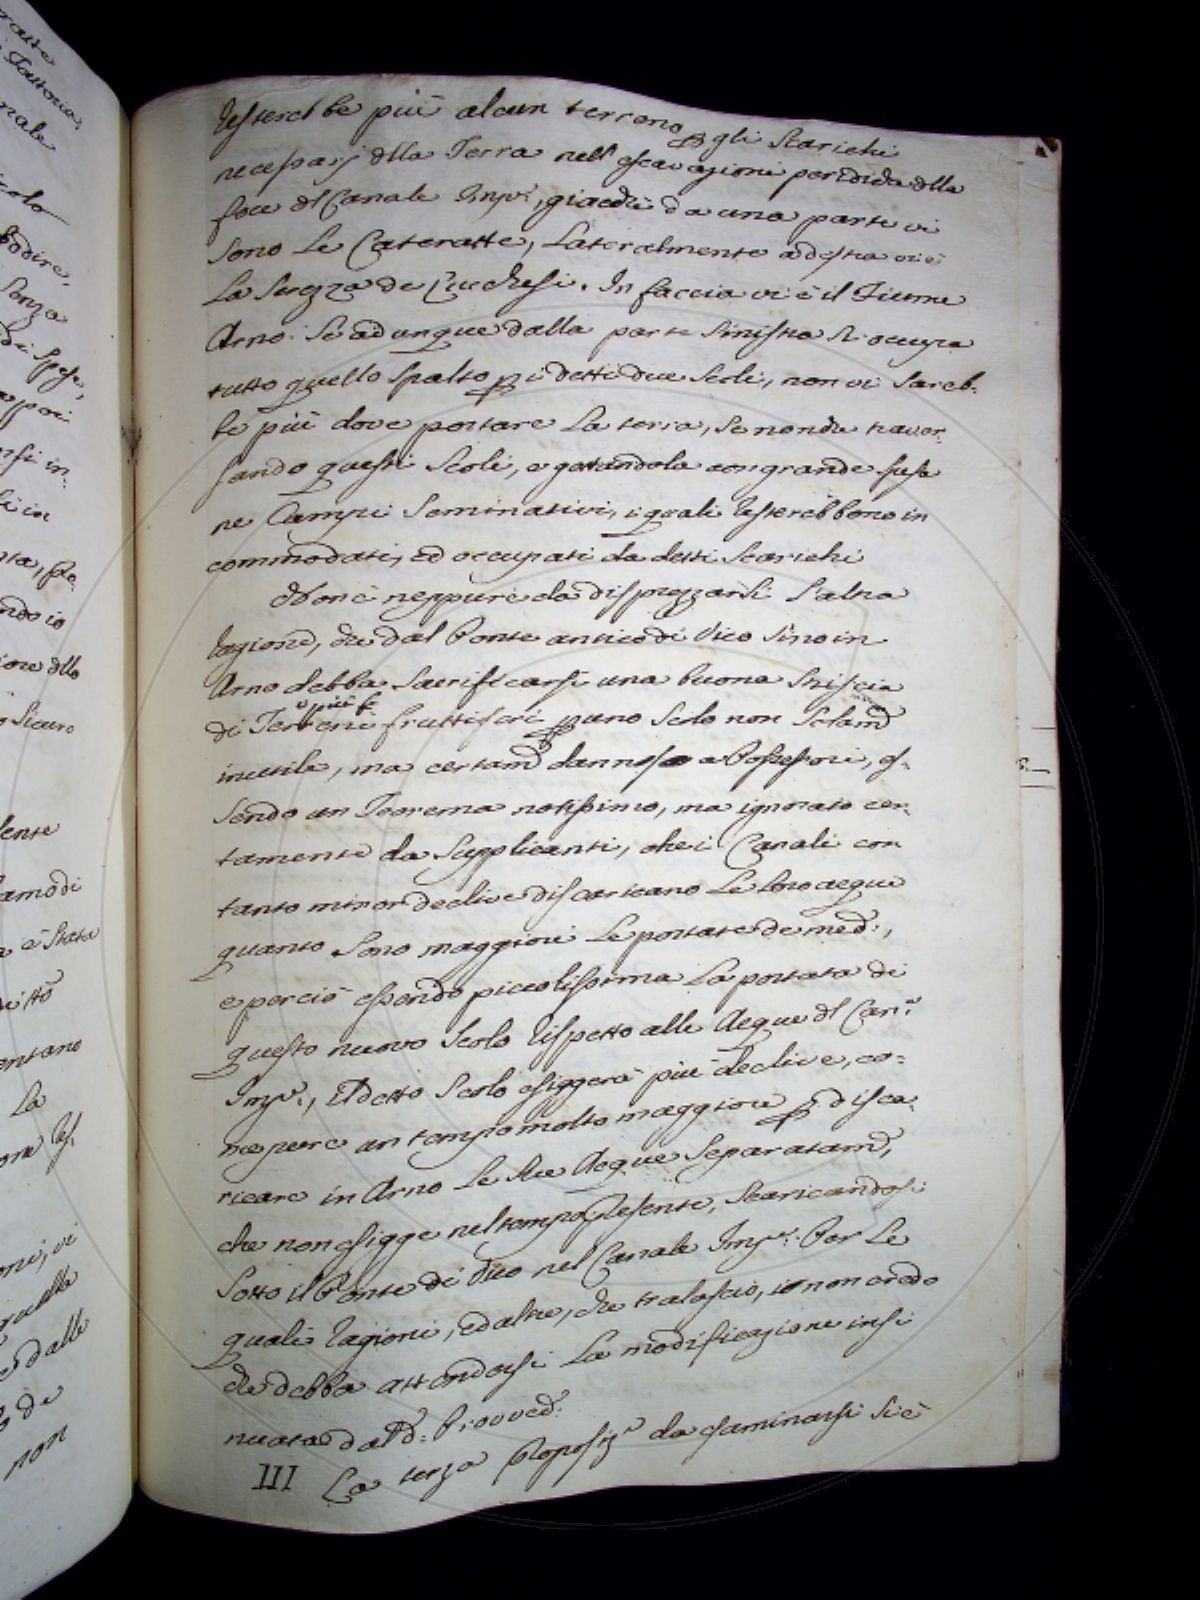 resterebbe più alcun terreno p gli scarichi
necessarj dlla Terra nell'escavazioni dlla
foce dl Canale Imple, giacchè da una parte vi
sono le Cateratte, lateralmente a destra vi è
la Serezza de Lucchesi. In faccia vi è il Fiume
Arno. Se adunque dalla parte sinistra si occupa
tutto quello spalto p i detti due scoli, non vi sareb-
be più dove portare la terra, se non che traver-
sando questi scoli, e gettandola con grande spesa
ne Campi seminativi, i quali resterebbono in
commodati, ed occupati da detti scarichi
Non è neppure da disprezzarsi l'altra
ragione, che dal Ponte antico di Vico sino in
Arno debba sacrificarsi una buona striscia
di Terreni i più fruttiferi p uno scolo non solamte
inutile, ma certamte dannoso a Possessori, es-
sendo un Teorema notissimo, ma ignorato cer-
tamente da Supplicanti, che i Canali con
tanto minor declive discaricano le loro acque
quanto sono maggiori le portate de med.i,
e perciò essendo piccolissima la portata di
questo nuovo scolo rispetto alle Acque dl Can.e
Imple, il detto scolo esiggerà più declive, co-
me pure un tempo molto maggiore p disca-
ricare in Arno le sue Acque separatamte,
che non esigge nel tempo presente, scaricandosi
sotto il Ponte di Vico nel Canale Imple. Per le
quali ragioni, ed altre, che tralascio, io non credo
che debba attendersi la modificazione insi
nuata dal d: Provved.
III La terza Proposize da esaminarsi si è